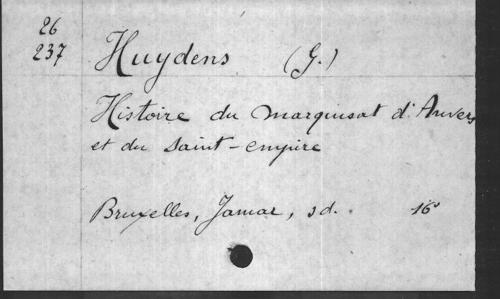 26
237
Huydens (G.)
Histoire du marquisat d'Anvers
et du Saint-empire
Bruxelles, Jamar, s d. 16°